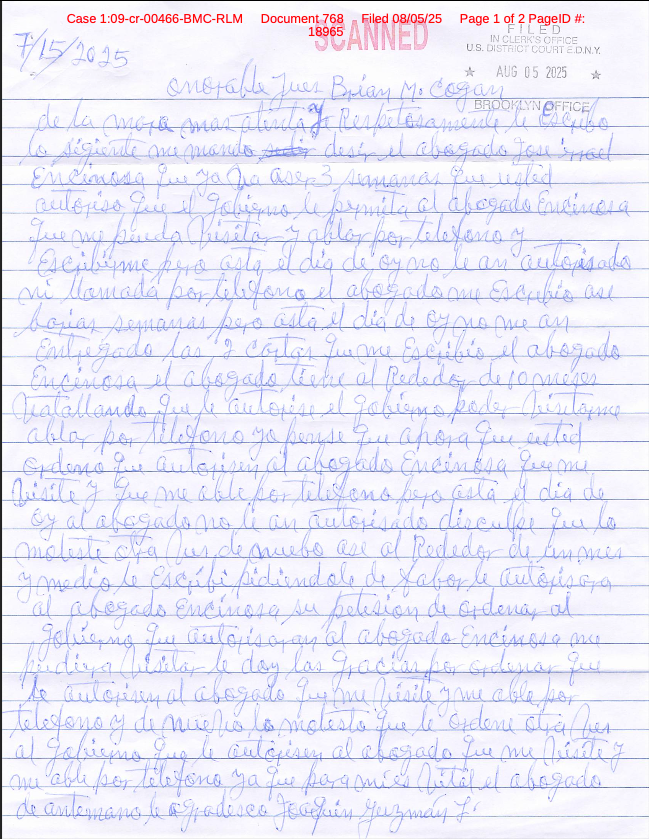 Case 1:09-cr-00466-BMC-RLM Document 768 Filed 08/05/25 Page 1 of 2 PageID #: 18965
SCANNED
FILED
IN CLERK'S OFFICE
U.S. DISTRICT COURT E.D.N.Y.
★ AUG 05 2025 ★
BROOKLYN OFFICE
7/15/2025
onorable Jues Brian M. Cogan
de la mora mas atenta y Respetosamente le Escribo
lo sigiente me mando desir el abogado Jose
Encinosa que ya ha aser 3 semanas que usted
autoriso que el gobierno le permita al abogado Encinosa
que me pueda visitar y ablar por telefono y
Escribirme pero asta el dia de oy no le an autorisado
ni llamada por telefono el abogado me Escribio ase
barias semanas pero asta el dia de oy no me an
Entregado las 2 cartas que me Escribio el abogado
Encinosa el abogado tiene al Rededor de 10 meses
vatallando que le autorise el gobierno poder visitarme
ablar por telefono yo pense que ahora que usted
ordeno que autorisen al abogado Encinosa que me
visite y que me able por telefono pero asta el dia de
oy al abogado no le an autorisado disculpe que lo
moleste otra ves de nuebo ase al Rededor de un mes
y medio le Escribi pidiendole de fabor le autorisara
al abogado Encinosa su petision de ordenar al
gobierno que autorisaran al abogado Encinosa me
pudiera visitar le doy las gracias por ordenar que
le autorisen al abogado que me visite y me able por
telefono y de nuevo lo molesto que le ordene otra ves
al gobierno que le autorisen al abogado que me visite y
me able por telefono ya que para mi es vital el abogado
de antemano le agradesco Joaquin Guzmán L.